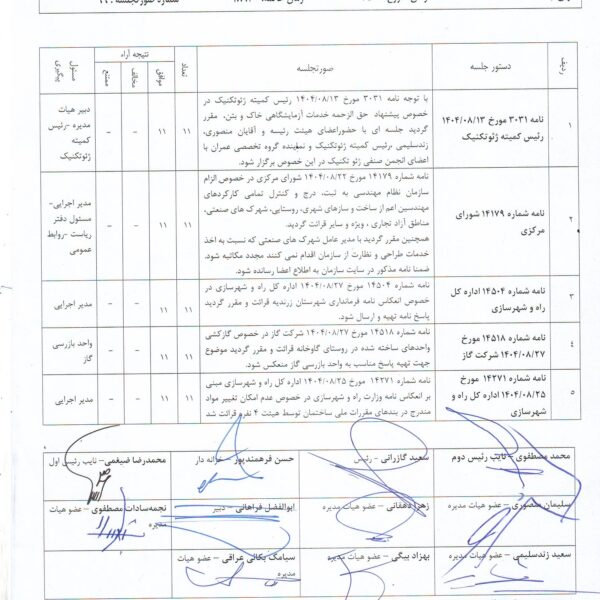 شماره صورتجلسه :
ردیف
دستور جلسه
صورتجلسه
نتیجه آراء
تعداد
موافق
مخالف
ممتنع
مسئول پیگیری
۱
نامه ۳۰۳۱ مورخ ۱۴۰۴/۰۸/۱۳
رئیس کمیته ژئوتکنیک
با توجه نامه ۳۰۳۱ مورخ ۱۴۰۴/۰۸/۱۳ رئیس کمیته ژئوتکنیک در
خصوص پیشنهاد حق الزحمه خدمات آزمایشگاهی خاک و بتن، مقرر
گردید جلسه ای با حضوراعضای هیئت رئیسه و آقایان منصوری،
زندسلیمی ،رئیس کمیته ژئوتکنیک و نماینده گروه تخصصی عمران با
اعضای انجمن صنفی ژئو تکنیک در این خصوص برگزار شود.
۱۱
۱۱
–
–
دبیر هیات
مدیره -رئیس
کمیته
ژئوتکنیک
۲
نامه شماره ۱۴۱۷۹ شورای
مرکزی
نامه شماره ۱۴۱۷۹ مورخ ۱۴۰۴/۰۸/۲۲ شورای مرکزی در خصوص الزام
سازمان نظام مهندسی به ثبت، درج و کنترل تمامی کارکردهای
مهندسین اعم از ساخت و سازهای شهری، روستایی، شهرک های صنعتی،
مناطق آزاد تجاری ، ویژه و سایر قرائت گردید.
همچنین مقرر گردید با مدیر عامل شهرک های صنعتی که نسبت به اخذ
خدمات طراحی و نظارت از سازمان اقدام نمی کنند مجدد مکاتبه شود.
ضمنا نامه مذکور در سایت سازمان به اطلاع اعضا رسانده شود.
۱۱
۱۱
–
–
مدیر اجرایی-
مسئول دفتر
ریاست -روابط
عمومی
۳
نامه شماره ۱۴۵۰۴ اداره کل
راه و شهرسازی
نامه شماره ۱۴۵۰۴ مورخ ۱۴۰۴/۰۸/۲۷ اداره کل راه و شهرسازی در
خصوص انعکاس نامه فرمانداری شهرستان زرندیه قرائت و مقرر گردید
پاسخ نامه تهیه و ارسال شود.
۱۱
۱۱
–
–
مدیر اجرایی
۴
نامه شماره ۱۴۵۱۸ مورخ
۱۴۰۴/۰۸/۲۷ شرکت گاز
نامه شماره ۱۴۵۱۸ مورخ ۱۴۰۴/۰۸/۲۷ شرکت گاز در خصوص گازکشی
واحدهای ساخته شده در روستای گاوخانه قرائت و مقرر گردید موضوع
جهت تهیه پاسخ مناسب به واحد بازرسی گاز منعکس شود.
۱۱
۱۱
–
–
واحد بازرسی
گاز
۵
نامه شماره ۱۴۲۷۱ مورخ
۱۴۰۴/۰۸/۲۵ اداره کل راه و
شهرسازی
نامه شماره ۱۴۲۷۱ مورخ ۱۴۰۴/۰۸/۲۵ اداره کل راه و شهرسازی مبنی
بر انعکاس نامه وزارت راه و شهرسازی در خصوص عدم امکان تغییر مواد
مندرج در بندهای مقررات ملی ساختمان توسط هیئت ۴ نفره قرائت شد
۱۱
۱۱
–
–
مدیر اجرایی
محمد مصطفوی – نایب رئیس دوم
سعید گازرانی – رئیس
حسن فرهمندپور – خزانه دار
محمدرضا ضیغمی – نایب رئیس اول
سلیمان منصوری – عضو هیات مدیره
زهرا دهقانی – عضو هیات مدیره
ابوالفضل فراهانی – دبیر
نجمه‌سادات مصطفوی – عضو هیات
مدیره
سعید زندسلیمی – عضو هیات مدیره
بهزاد بیگی – عضو هیات مدیره
سیامک یکائی عراقی – عضو هیات
مدیره